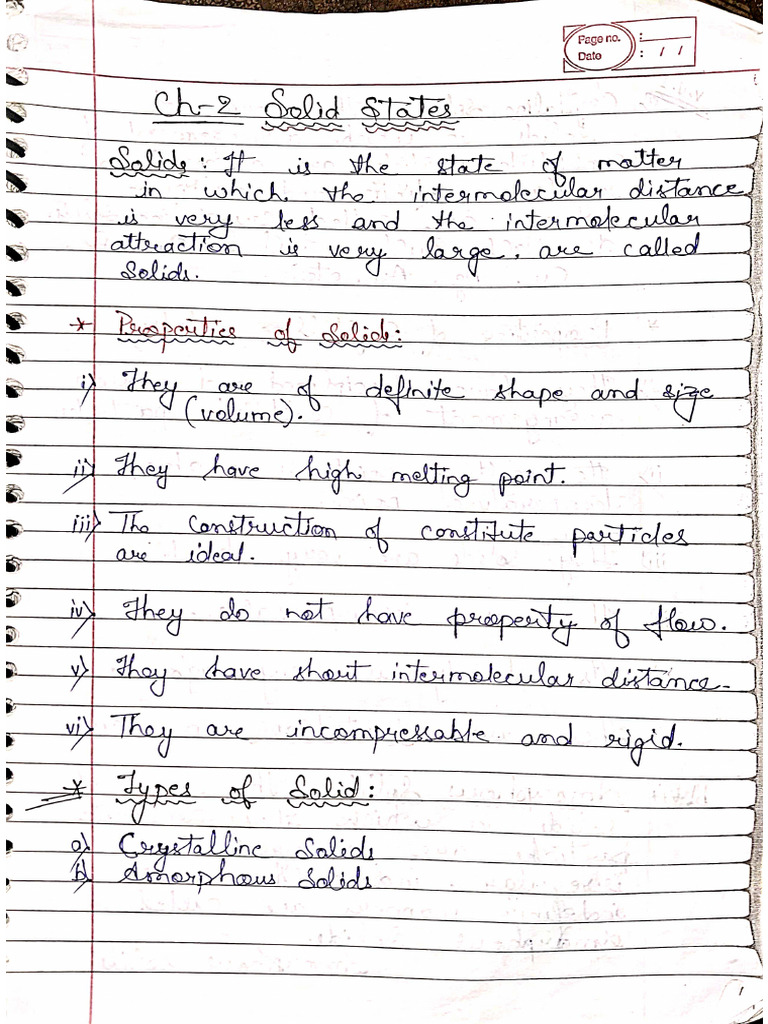 Page no. :
Date : / /
Ch-2 Solid States
Solids: It is the state of matter
in which the intermolecular distance
is very less and the intermolecular
attraction is very large. are called
solids.
* Properties of Solids:
i) They are of definite shape and size
(volume).
ii) They have high melting point.
iii) The construction of constitute particles
are ideal.
iv) They do not have property of flow.
v) They have short intermolecular distance-
vi) They are incompressable and rigid.
* Types of Solid:
a) Crystalline Solids
b) Amorphous Solids